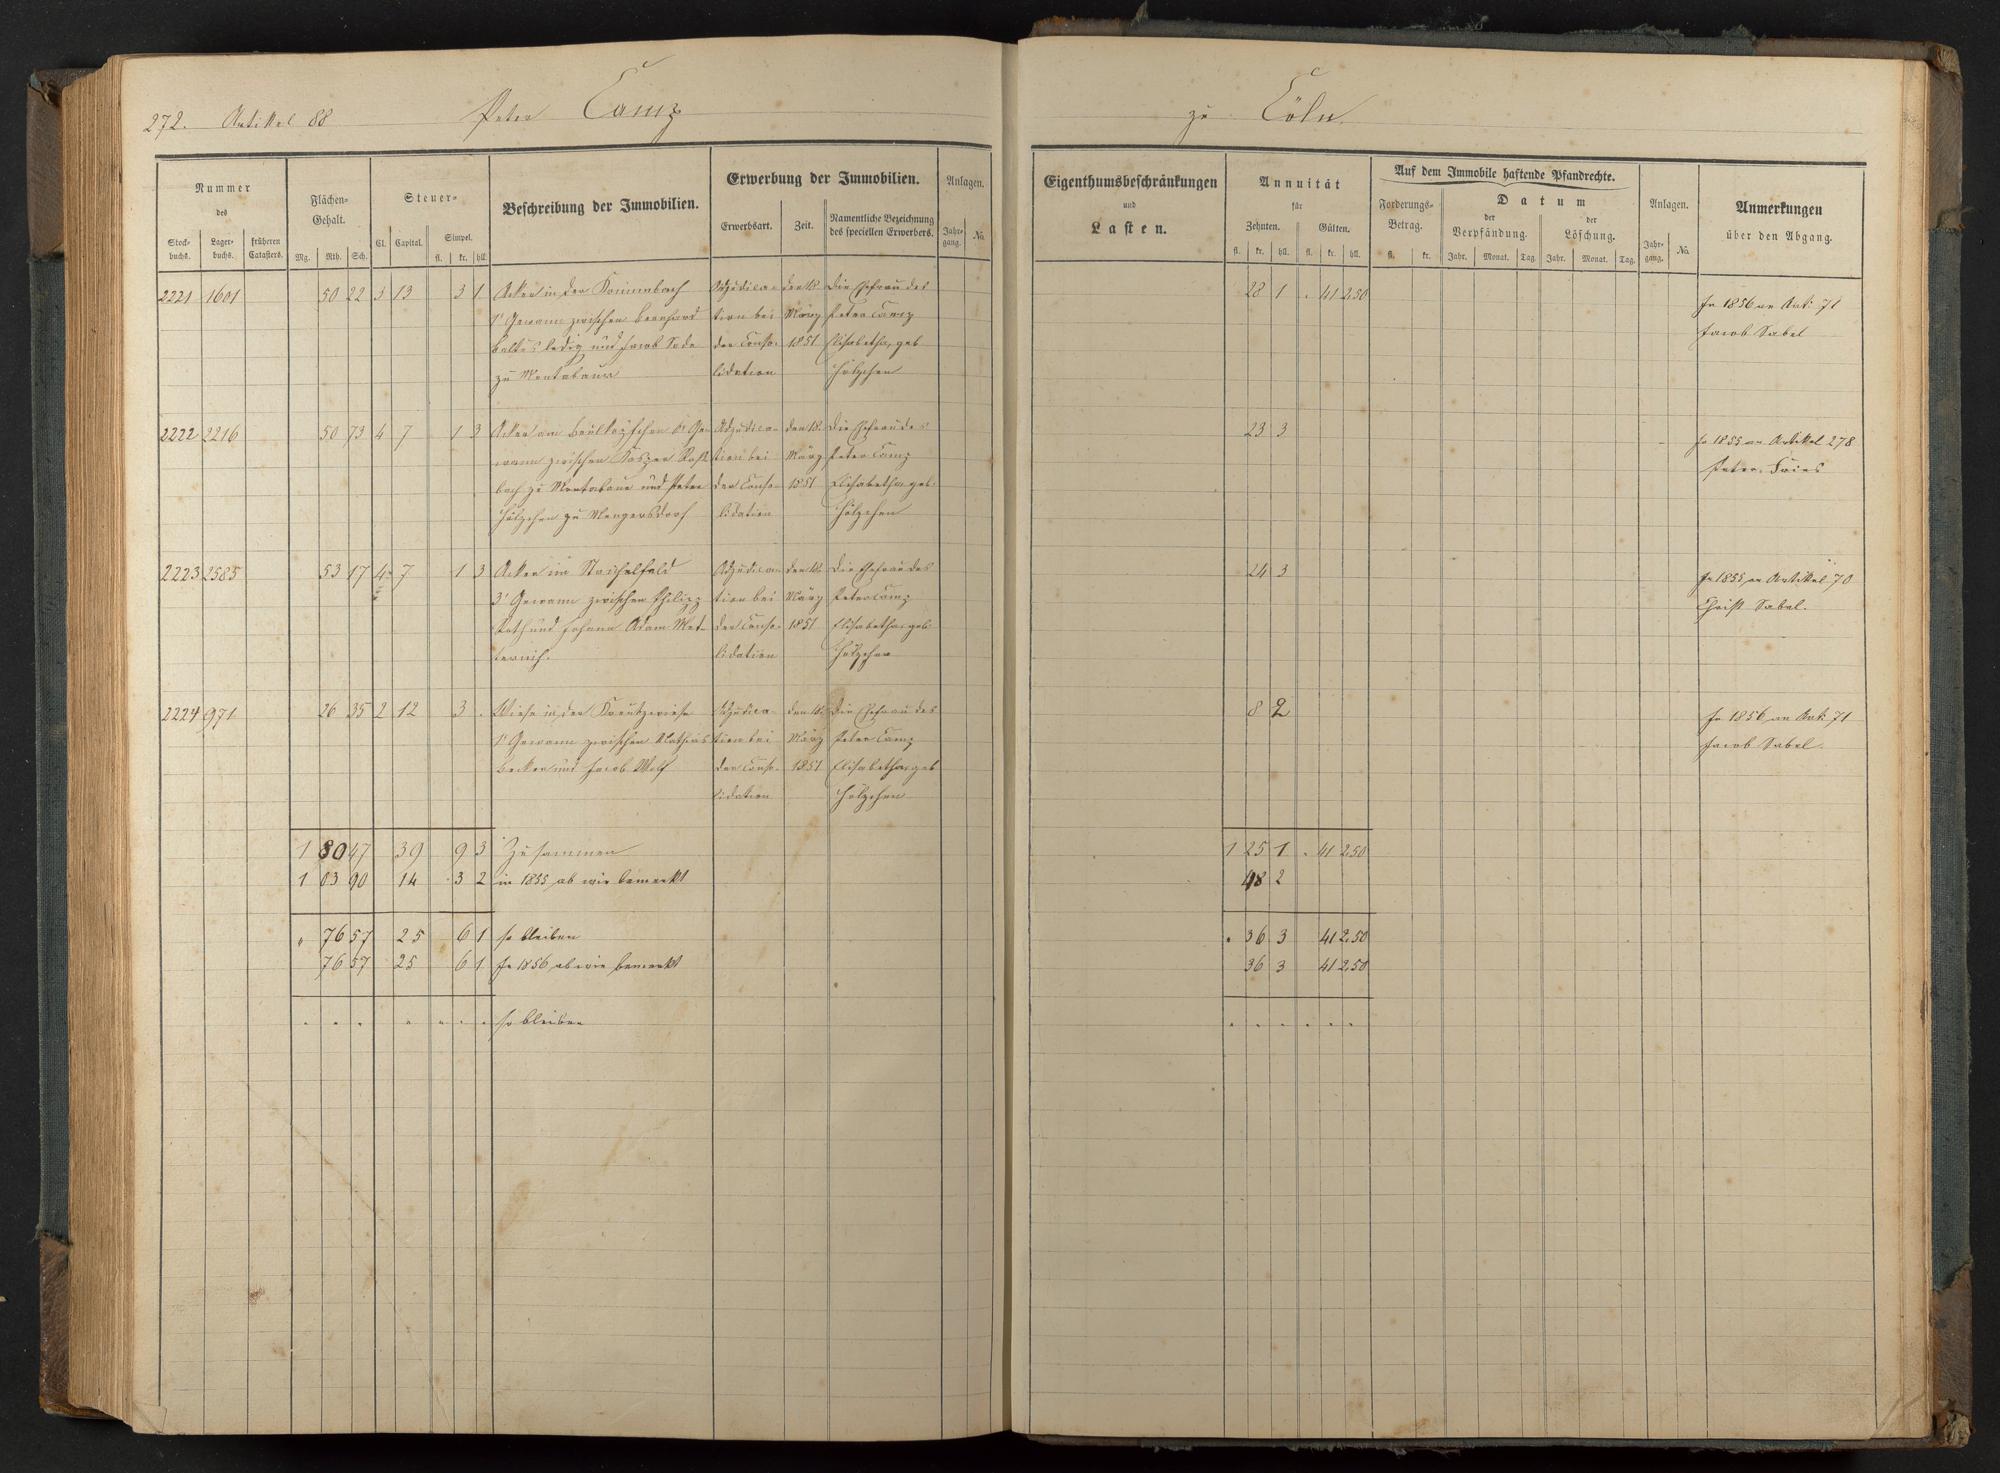 272. Artikel 88 Peter Camp
Nummer
des
Stock-
buchs.
Lager-
buchs.
früheren
Catasters.
Flächen-
Gehalt.
Mg. Rth. Sch.
Steuer-
Cl. Capital. Simpel.
fl. kr. hll.
Beschreibung der Immobilien.
Erwerbung der Immobilien.
Erwerbsart. Zeit.
Namentliche Bezeichnung
des speciellen Erwerbers.
Anlagen.
Jahr-
gang.
No.
2221 1601 50 22 3 13 3 1 Acker in der Krimmbach Adjudica- den 18. Die Ehefrau des
1' Gewann zwischen Bernhard tion bei März Peter Camp
Baltes ledig und Jacob Sode der Conso- 1851 Elisabetha, geb
zu Montabaur lidation Hölzchen
2222 2216 50 73 4 7 1 3 Acker am 6' Ge- Adjudica- den 18. Die Ehefrau des
wann zwischen Kasper Roß tion bei März Peter Camp
bach zu Montabaur und Peter der Conso- 1851 Elisabetha geb.
Hölzchen zu Mengersdorf lidation Hölzchen
2223 2585 53 17 4 7 1 3 Acker im Stachelfeld Adjudica- den 18. Die Ehefrau des
3' Gewann zwischen Philipp tion bei März Peter Camp
Roth und Johann Adam Met- der Conso- 1851 Elisabetha geb.
ternich. lidation Hölzchen
2224 971 26 35 2 12 3 . Wiese in der Kreutzwiese Adjudica- den 18. Die Ehefrau des
1' Gewann zwischen Mathias tion bei März Peter Camp
Becker und Jacob Wolf der Conso- 1851 Elisabetha, geb
lidation Hölzchen
1 80 47 39 9 3 Zusammen
1 03 90 14 . 3 2 in 1855 ab wie bemerkt
" 76 57 25 6 1 so bleiben
76 57 25 6 1 In 1856 ab wie bemerkt
" " " " " " " so bleiben
zu Cöln.
Eigenthumsbeschränkungen
und
Lasten.
Annuität
für
Zehnten. Gülten.
fl. kr. hll. fl. kr. hll.
Auf dem Immobile haftende Pfandrechte.
Forderungs-
Betrag.
fl. kr.
Datum
der
Verpfändung.
der
Löschung.
Jahr. Monat. Tag. Jahr. Monat. Tag.
Anlagen.
Jahr-
gang.
No.
Anmerkungen
über den Abgang.
28 1 . 41 2,50 In 1856 an Art. 71
Jacob Sabel
23 3 In 1855 an Artikel 278
Peter Fries
24 3 In 1855 an Artikel 70
Christ Sabel.
8 2 In 1856 an Art. 71
Jacob Sabel.
1 25 1 . 41 2,50
48 2
. 36 3 41 2,50
36 3 41 2,50
" " " " " "